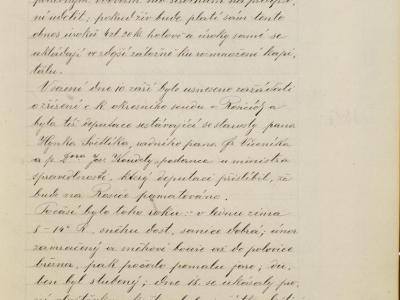 ní udělil; pokud živ bude platí sám tento
obnos úroků 4 zl 20 k hotově a úroky samé se
ukládají ve zdejší záložně ku rozmnožení kapi-
tálu.
V sezení dne 10 září bylo usneseno zažádati
o zřízení c. k. okresního soudu v Rosicích a
byla též deputace sestávající se starosty pana
Hynka Světlíka, radního pana Fr.
a p. Dra Jos. poslance u ministra
spravedlnosti, který deputaci přislíbil, že
bude na Rosice pamatováno.
Počasí bylo toho roku: v lednu zima
8 - 14° R. sněhu dost, sanice dobrá; únor
zamračený a sněhové bouře až do polovice
března, pak počalo pomalu jaro; du-
ben byl studený; dne 18. se ukázaly po-